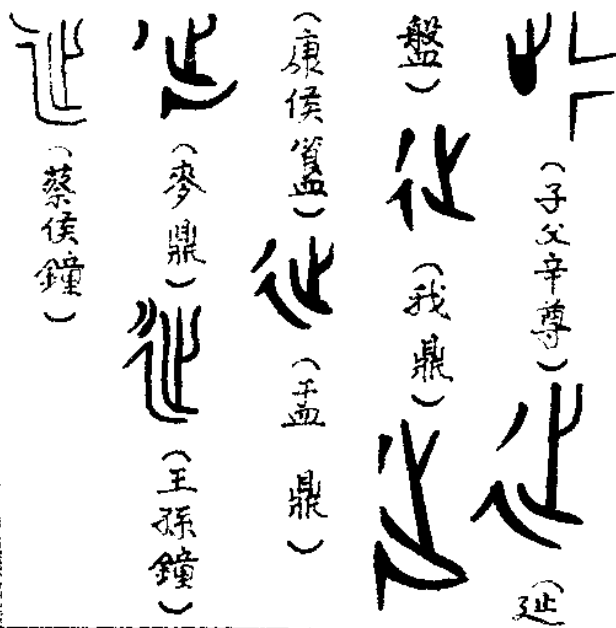 （子父辛尊）（㢟
盤）（我鼎）
（康侯簋）（盂鼎）
（麥鼎）（王孫鐘）
（蔡侯鐘）